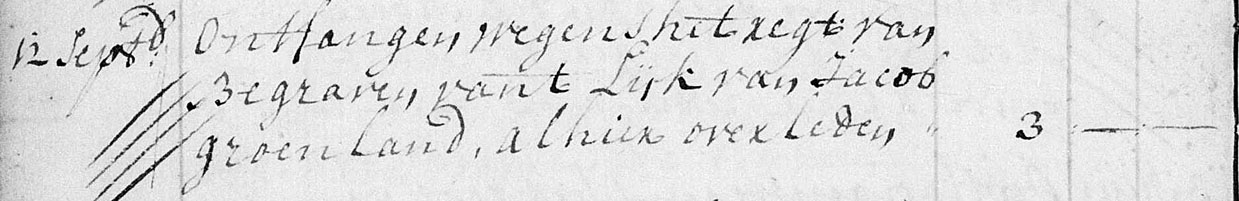 12 Septb: Ontfangen wegens hit regt van
Begraven vant Lijk van Jacob
groenland, alhier overleden " 3 — —